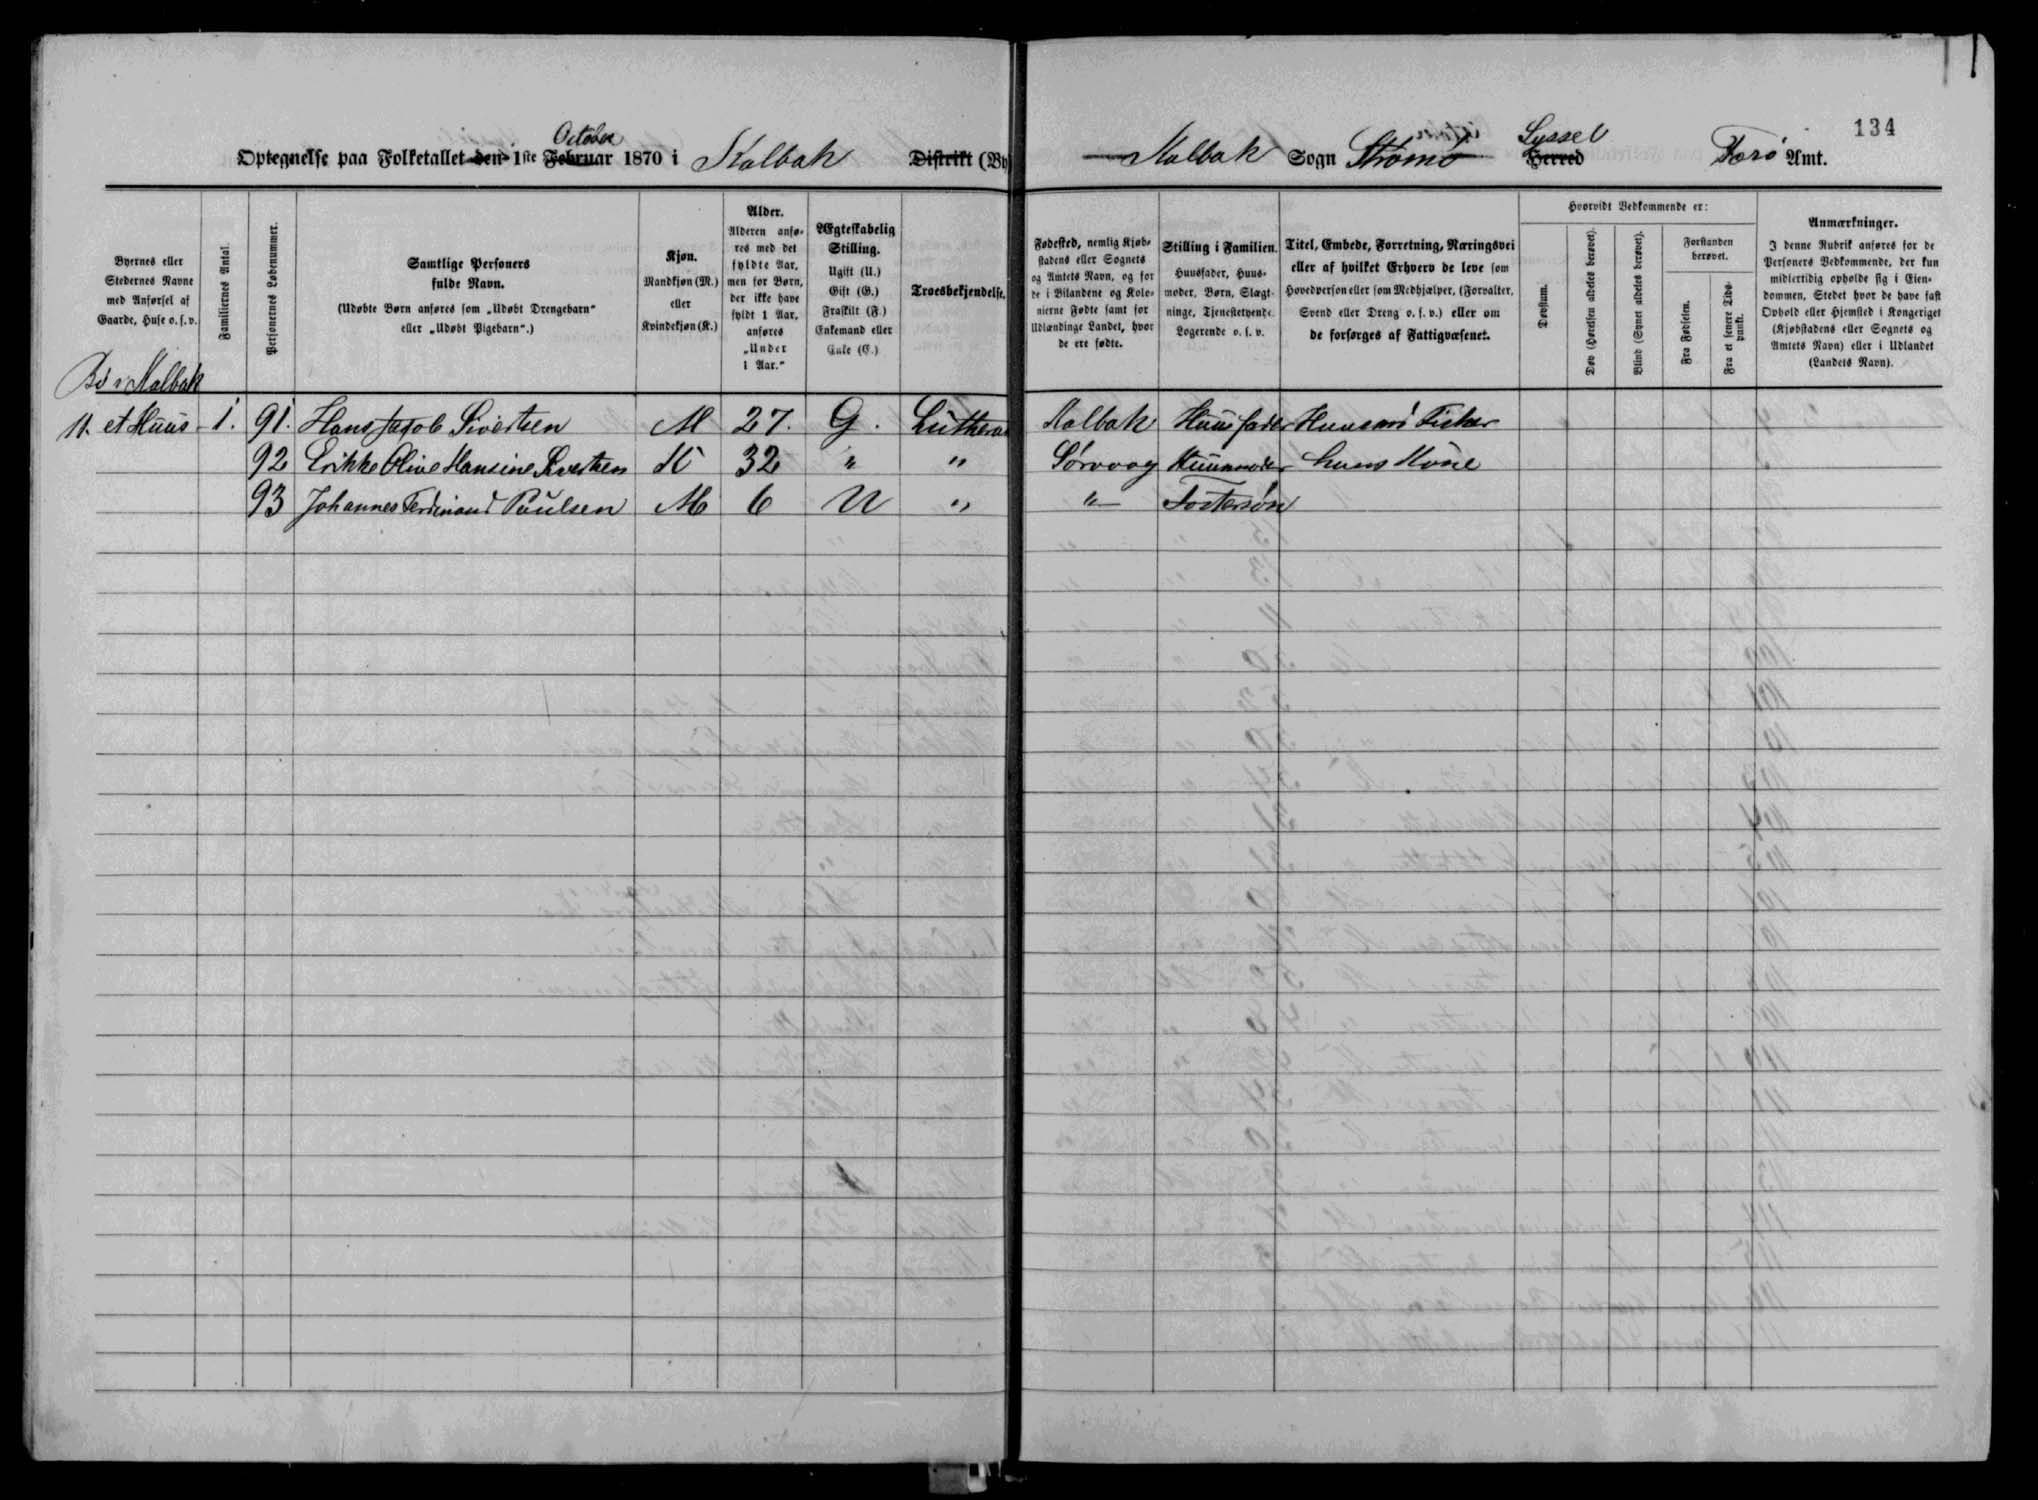 134
Optegnelse paa Folketallet den 1ste Februar 1870 i Kalbak Distrikt (By
October
Kalbak Sogn Strømø Herred Færø Amt.
Syssel
Byernes eller
Stedernes Navne
med Anførsel af
Gaarde, Huse o. s. v.
Familiernes Antal.
Personernes Løbenummer.
Samtlige Personers
fulde Navn.
(Udøbte Børn anføres som „Udøbt Drengebarn“
eller „Udøbt Pigebarn“.)
Kjøn.
Mandkjøn (M.)
eller
Kvindekjøn (K.)
Alder.
Alderen anfø-
res med det
fyldte Aar,
men for Børn,
der ikke have
fyldt 1 Aar,
anføres
„Under
1 Aar.“
Ægteskabelig
Stilling.
Ugift (U.)
Gift (G.)
Fraskilt (F.)
Enkemand eller
Enke (E.)
Troesbekjendelse.
Fødested, nemlig Kjøb-
stadens eller Sognets
og Amtets Navn, og for
de i Bilandene og Kolo-
nierne Fødte samt for
Udlændinge Landet, hvor
de ere fødte.
Stilling i Familien.
Huusfader, Huus-
moder, Børn, Slægt-
ninge, Tjenestetyende,
Logerende o. s. v.
Titel, Embede, Forretning, Næringsvei
eller af hvilket Erhverv de leve som
Hovedperson eller som Medhjælper, (Forvalter,
Svend eller Dreng o. s. v.) eller om
de forsørges af Fattigvæsenet.
Hvorvidt Vedkommende er:
Døvstum.
Døv (Hørelsen aldeles berøvet).
Blind (Synet aldeles berøvet).
Forstanden
berøvet.
Fra Fødselen.
Fra et senere Tids-
punkt.
Anmærkninger.
I denne Rubrik anføres for de
Personers Vedkommende, der kun
midlertidig opholde sig i Eien-
dommen, Stedet hvor de have fast
Ophold eller Hjemsted i Kongeriget
(Kjøbstadens eller Sognets og
Amtets Navn) eller i Udlandet
(Landets Navn).
Kalbak
11. et Huus 1. 91. Hans Jacob Sivertsen M 27. G. Luthera Kalbak Huusfader Huusm Fisker
92 Erikke Olive Hansine Sivertsen K 32 " " Sørvaag Huusmoder hans Kone
93 Johannes Ferdinand Poulsen M 6 U " " Fostersøn